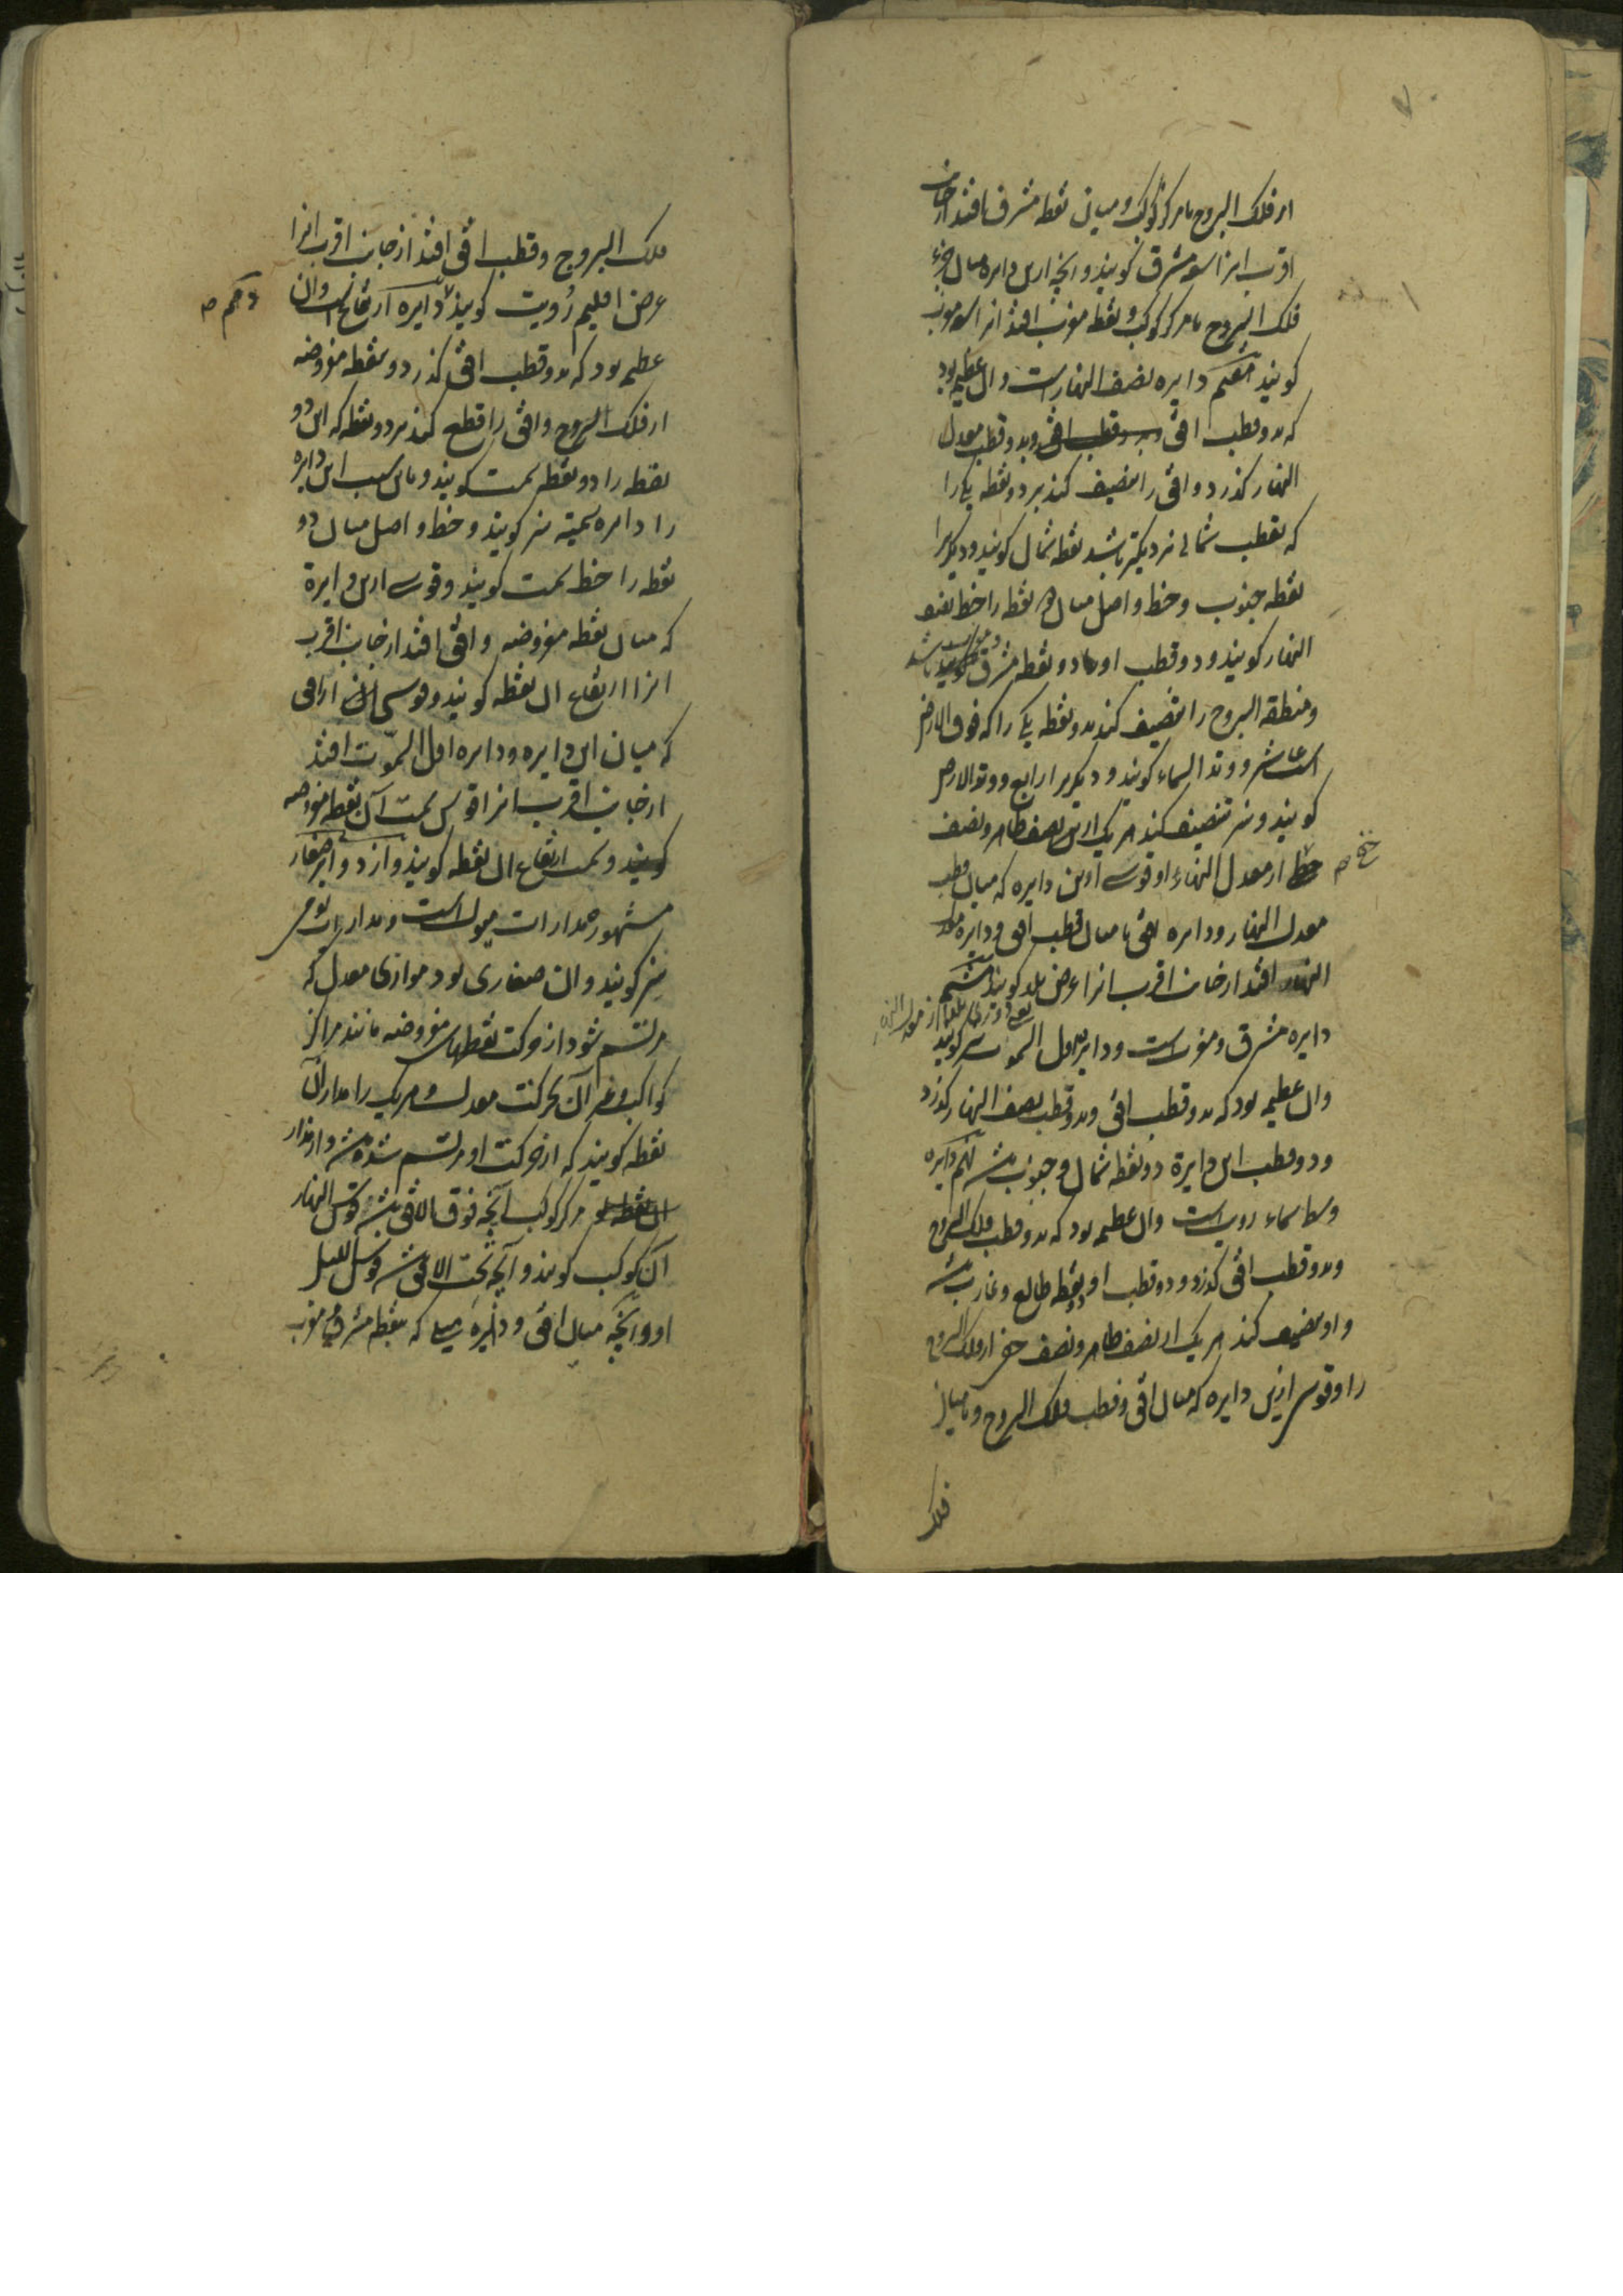 از فلک البروج یا مرکز کوکب و میان نقطه مشرق افتد از جانب
اقرب انرا سعه مشرق کویند و انچه ازین دایره میان جزء
فلک البروج یا مرکز کوکب و نقطه مغرب افتد انرا سعه مغرب
کویند هفتم دایره نصف النهار است و ان عظیمه بود
که بدو قطب افق و بدو قطب افق و بدو قطب معدل
النهار کذرد و افق را تنصیف کند بر دو نقطه یکی را
که بقطب شمالی نزدیکتر باشد نقطه شمال کویند و دیکریرا
نقطه جنوب و خط واصل میان هر دو نقطه را خط نصف
النهار کویند و دو قطب او دو نقطه مشرق و مغرب باشد
و منطقه البروج را تنصیف کند بدو نقطه یکی را که فوق الارض
است عاشر و وتد السماء کویند و دیکریرا رابع و وتد الارض
کویند و نیز تنصیف کند هر یک ازین نصف ظاهر و نصف
خفی ص
خط از معدل النهار و قوسی ازین دایره که میان قطب
معدل النهار و دایره افق یا میان قطب افق و دایره معدل
النهار افتد از جانب اقرب انرا عرض بلد کویند هشتم
یعنی دوری بلد از معدل النهار
دایره مشرق و مغرب است و دایره اول السموت نیز کویند
وان عظیمه بود که بدو قطب افق و بدو قطب نصف النهار کذرد
و دو قطب این دایرة دو نقطه شمال و جنوب باشد نهم دایره
وسط سماء رویت است وان عظیمه بود که بدو قطب فلک البروج
و بدو قطب افق کذرد و دو قطب او دو نقطه طالع و غارب باشد
و او تنصیف کند هر یک از نصف ظاهر و نصف خفی از فلک البروج
را و قوسی ازین دایره که میان افق و قطب فلک البروج و یا میان
فلک
فلک البروج و قطب افق افتد از جانب اقرب انرا
عرض اقلیم رویت کویند دایره ارتفاع است وان
دهم ص
عظیمه بود که بدو قطب افق کذرد و بنقطه مفروضه
از فلک البروج و افق را قطع کند بر دو نقطه که این دو
نقطه را دو نقطه سمت کویند و باین سبب این دایره
را دایره سمتیه نیز کویند و خط واصل میان دو
نقطه را خط سمت کویند و قوسی ازین دایرة
که میان نقطه مفروضه و افق افتد از جانب اقرب
انرا ارتفاع ان نقطه کویند و قوسی از افق
که میان این دایره و دایره اول السموت افتد
از جانب اقرب انرا قوس سمت آن نقطه مفروضه
کویند و سمت ارتفاع ان نقطه کویند و از دوایر صغار
مشهوره مدارات میول است و مدارات یومی
نیز کویند وان صغاری بود موازی معدل که
مرتسم شود از حرکت نقطهای مفروضه مانند مراکز
کواکب و غیر آن بحرکت معدل و هر یک را مدار آن
نقطه کویند که از حرکت او مرتسم شده باشد و از مدار
ان نقطه مرکز کوکب آنچه فوق الافق باشد قوس النهار
آن کوکب کویند و آنچه تحت الافق باشد قوس اللیل
او و انچه میان افق و دایره میلی که بنقطه مشرق و مغرب